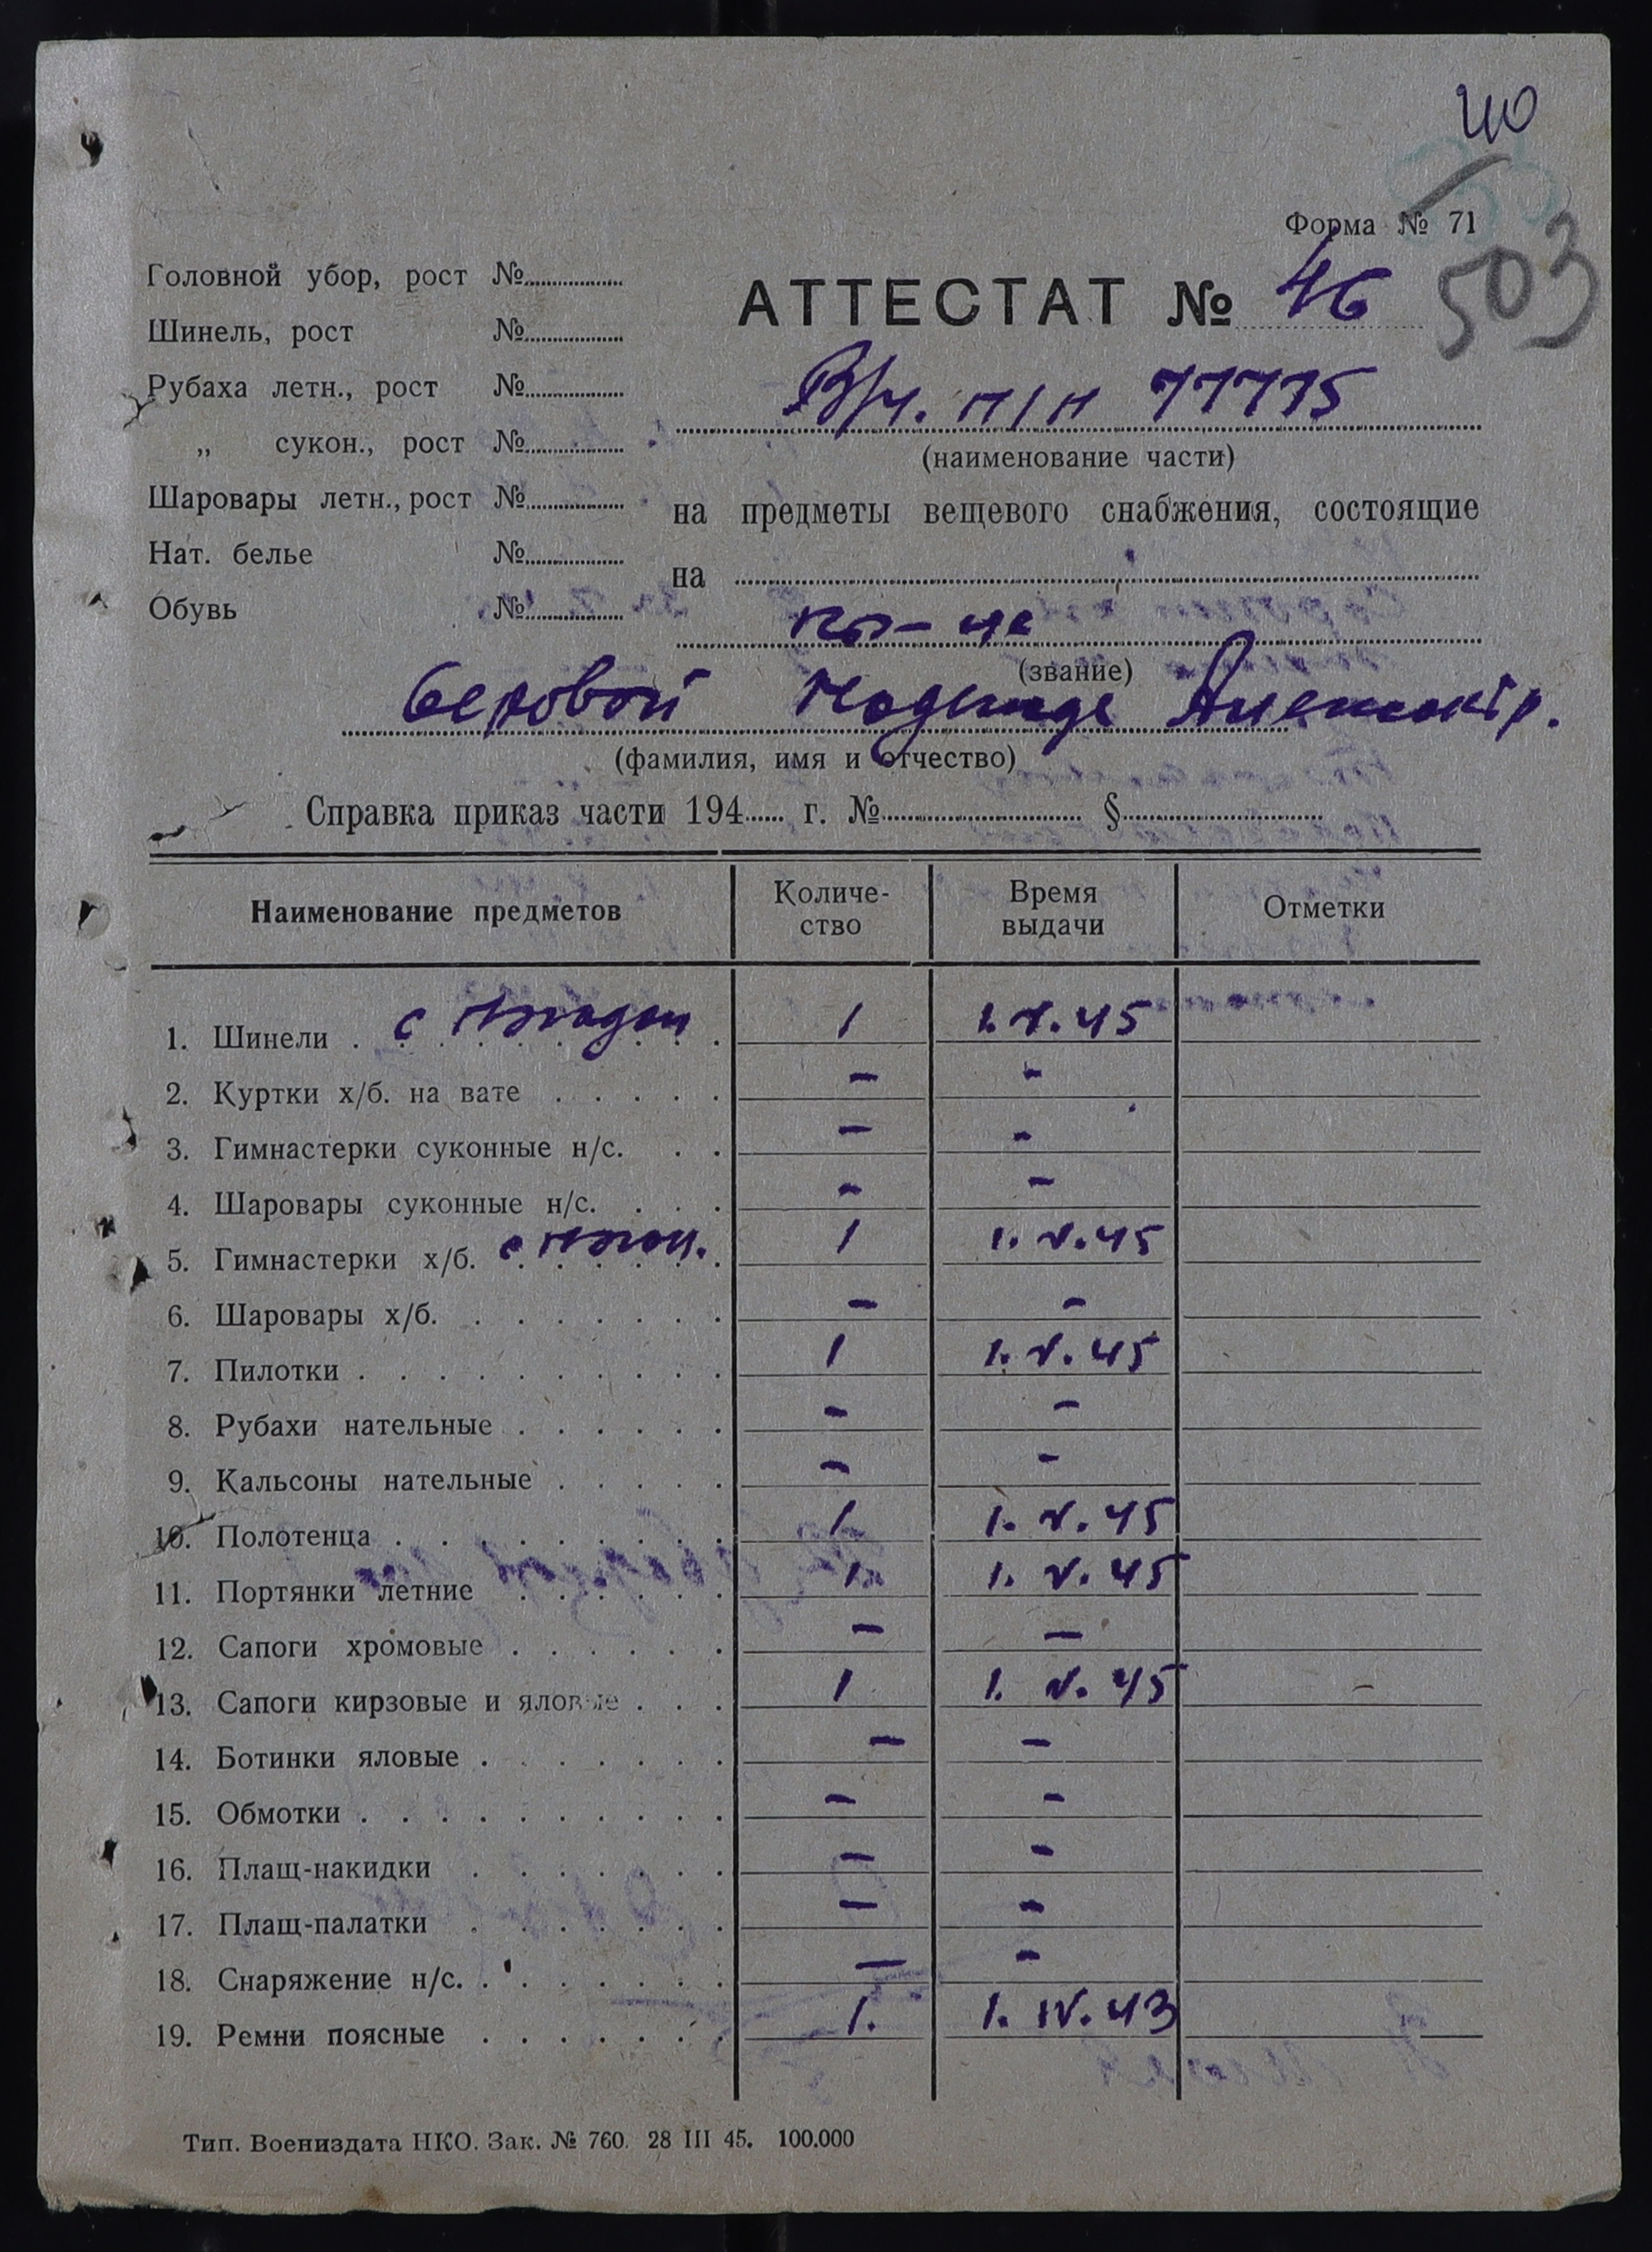 40
Форма № 71
503
Головной убор, рост №
Шинель, рост №
Рубаха летн., рост №
„ сукон., рост №
Шаровары летн., рост №
Нат. белье №
Обувь №
АТТЕСТАТ № 46
В/ч. п/п 77775
(наименование части)
на предметы вещевого снабжения, состоящие
на
(звание)
Надежде Александр.
(фамилия, имя и отчество)
Справка приказ части 194 г. № §
Наименование предметов Количе-ство Время выдачи Отметки
1. Шинели с 1 1.V.45
2. Куртки х/б. на вате - -
3. Гимнастерки суконные н/с. - -
4. Шаровары суконные н/с. - -
5. Гимнастерки х/б. с 1 1.V.45
6. Шаровары х/б. - -
7. Пилотки 1 1.V.45
8. Рубахи нательные - -
9. Кальсоны нательные - -
10. Полотенца 1 1.V.45
11. Портянки летние 1 1.V.45
12. Сапоги хромовые - -
13. Сапоги кирзовые и яловые 1 1.V.45
14. Ботинки яловые - -
15. Обмотки - -
16. Плащ-накидки - -
17. Плащ-палатки - -
18. Снаряжение н/с. - -
19. Ремни поясные 1. 1.IV.43
Тип. Воениздата НКО. Зак. № 760. 28 III 45. 100.000